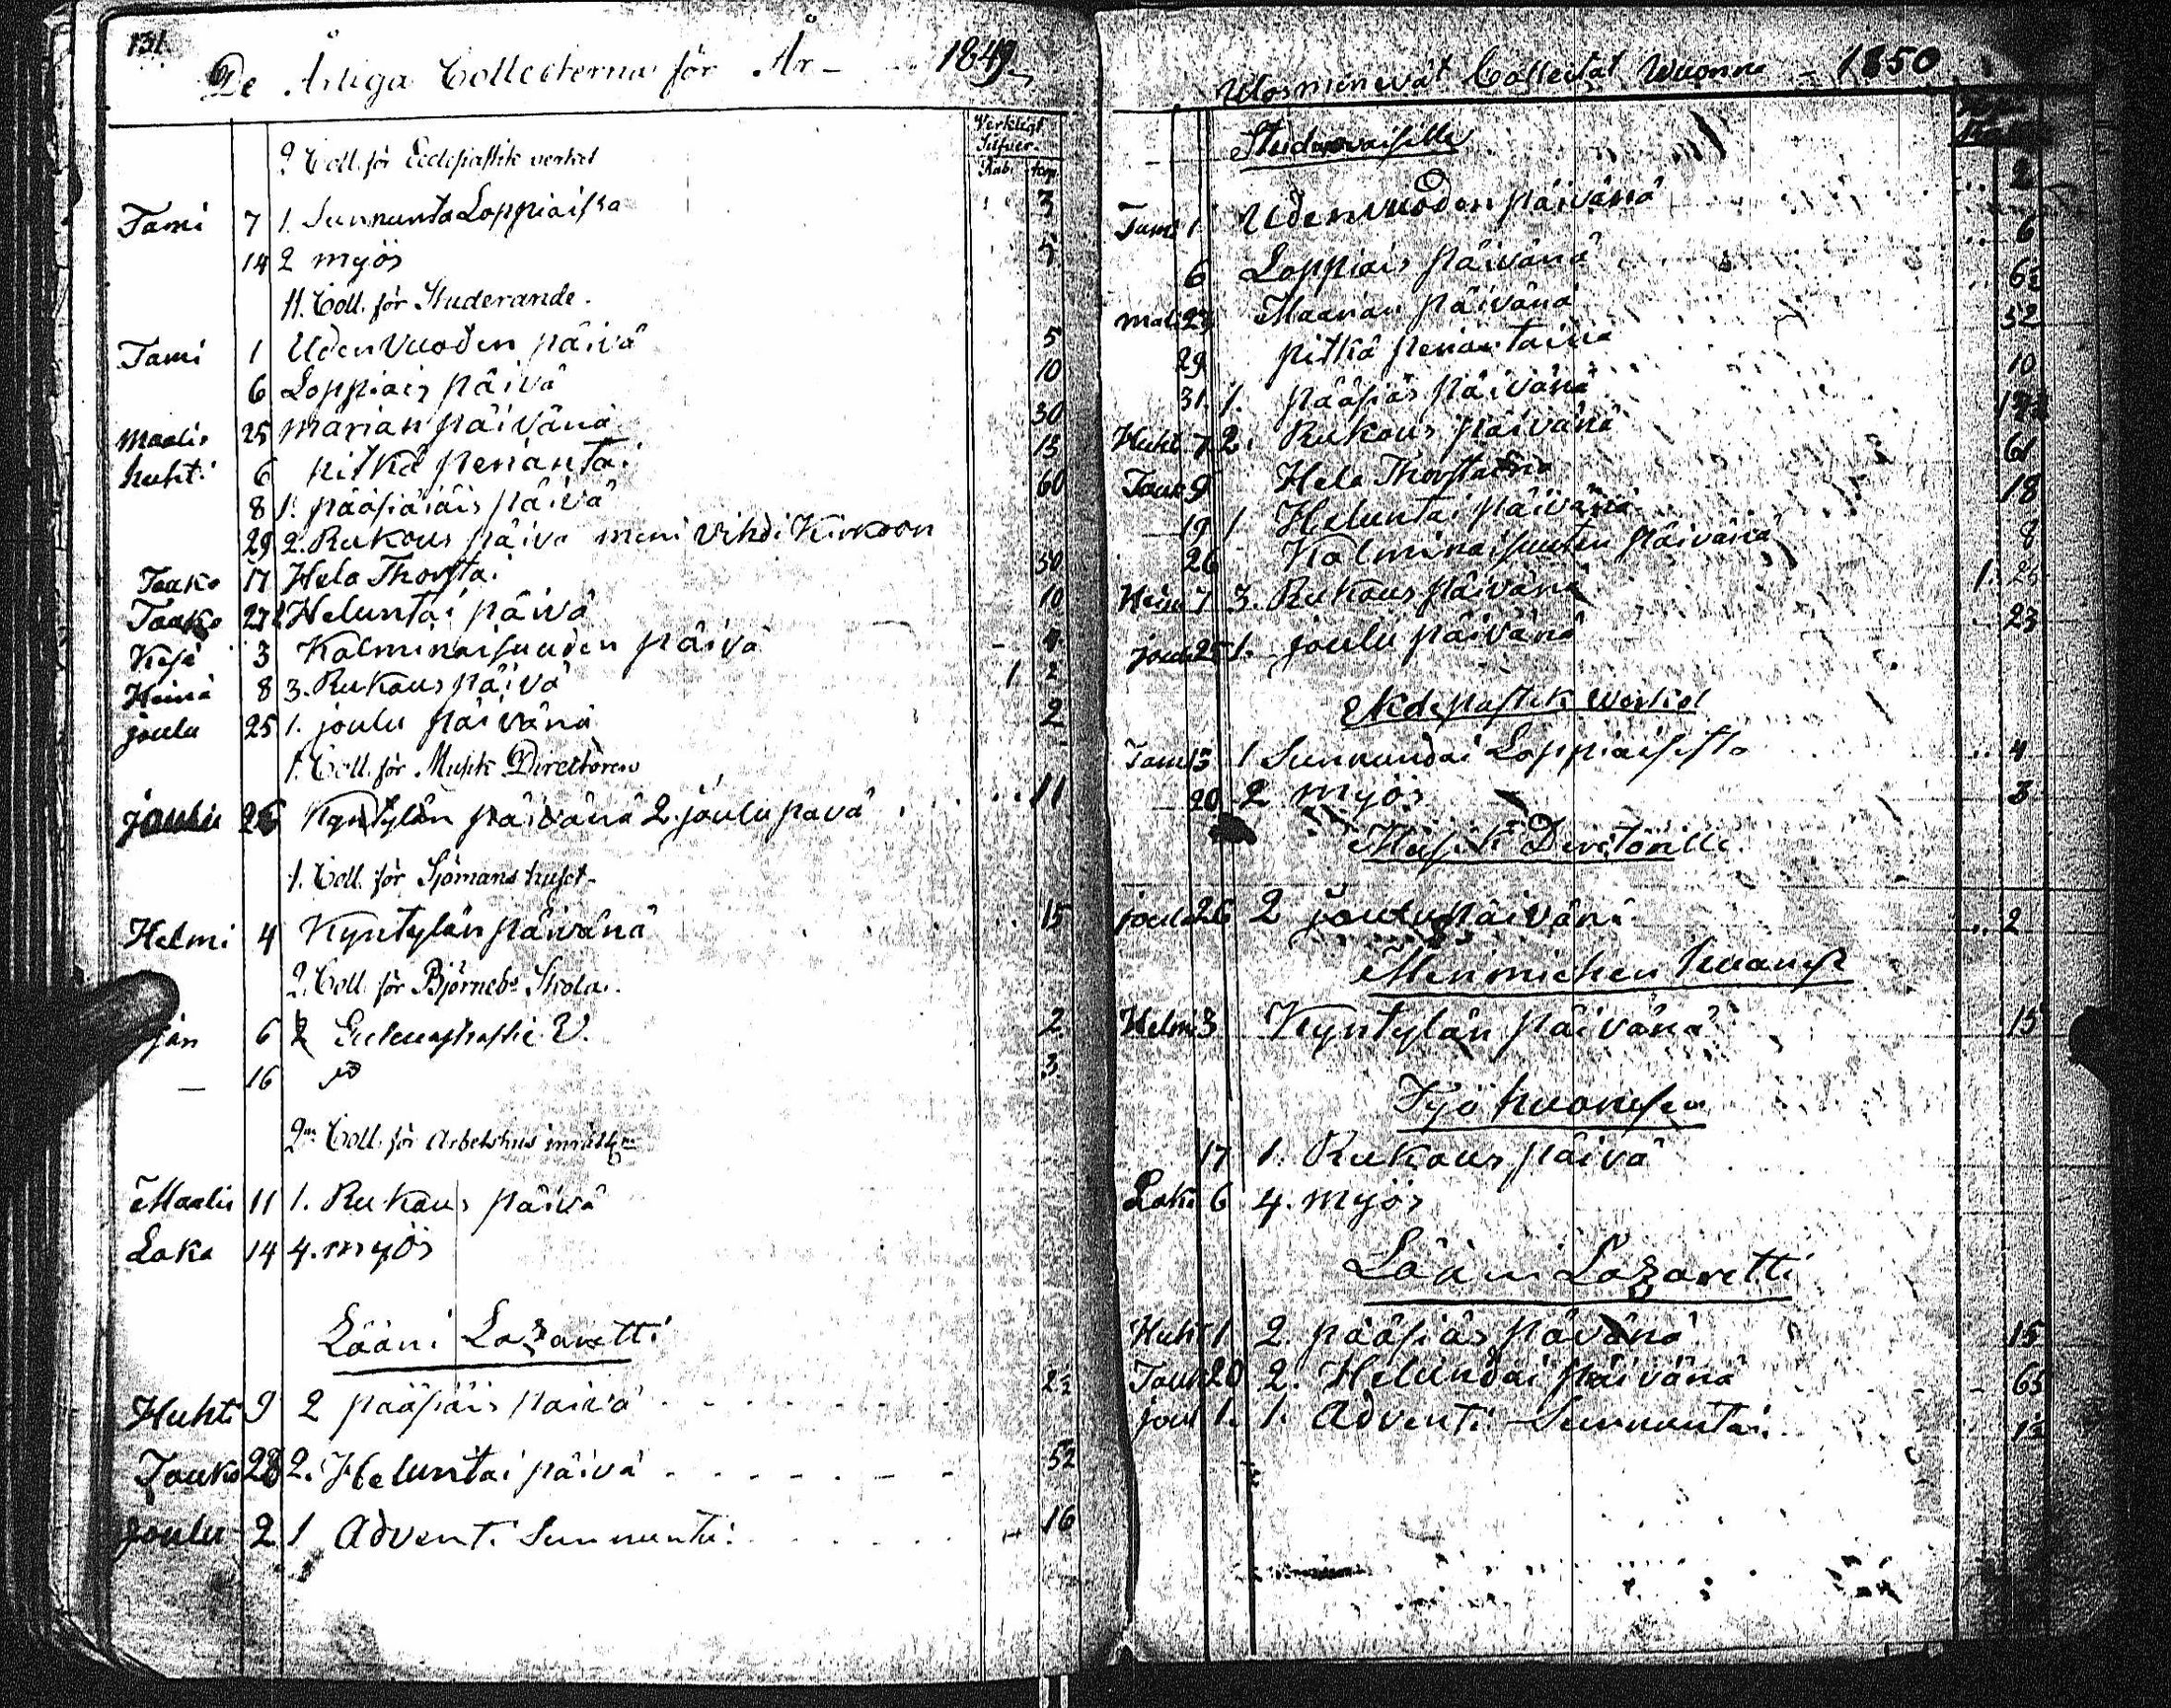 131.
De Årliga Collecterna för År - 1849
Verkligt Silfver.
Rub. kop.
2 Coll. för Ecclesiastik verket
Tami 7 1. Sunnunta Loppiaissa 3
14 2 myös 5
11. Coll. för Studerande.
Tami 1 Uden Vuoden päivä 5
6 Loppiais päivä 10
Maalis 25 Marian päivänä 30
huhti 6 pitkä perjantai 13
8 1. pääsiäis päivä 60
29 2. Rukous päivä meni Vihdi Kirkoon
Touko 17 Hela Thorstai 30
Touko 27 1 Heluntai päivä 10
Kesä 3 Kolminaisuuden päivä - 4
Heinä 8 3. Rukous päivä 1 2
joulu 25 1. joulu päivänä 2
1. Coll. för Musik Directören
joulu 26 Kyntylän päivänä 2. joulu pävä 11
1. Coll. för Sjömanshuset
Helmi 4 Kyntylän päivänä 15
2. Coll. för Björnebs Skola.
6 2 2
- 16 3
2m Coll. för Arbetshus
Maalis 11 1. Rukous päivä
Loka 14 4. myös
Lääni Lazaretti
Huhti 9 2 pääsiäis päivä 2½
Touko 28 2. Heluntai päivä 52
joulu 2 1 Adventi Sunnuntai 16
Ulosmenevät Collectat Wuonna - 1850
Studeravaisille
Tami 1 Uden Vuoden päivänä 2
6 Loppiais päivänä 6
Mali Maarian päivänä
29 pitkä perjantaina 32
31. 1. pääsiäs päivänä 10
Huht 7 2. Rukous päivänä
Touk 9 Hela Thorstaina 61
19 1 Heluntai päivänä 18
26 Kolminaisuuten päivänä 8
Hein 7 3. Rukous päivänä 1.
joulu 25 1. joulu päivänä 23
Ekclesiastik Werket
Tami 13 1 Sunnundai Loppiaisista 4
20 2 myös 3
Musik Directörille
joulu 26 2 joulu päivänä 2
Merimiehen huonesse
Helmi 3 Kyntylän päivänä 15
Työ huonesen
17 1. Rukous päivä
Loka 6 4. myös
Lääni Lazaretti
Huht 1 2. pääsiäs pävänä 15
Touk 20 2. Helundai päivänä 65
joul 1. 1. Adventi Sunnuntai